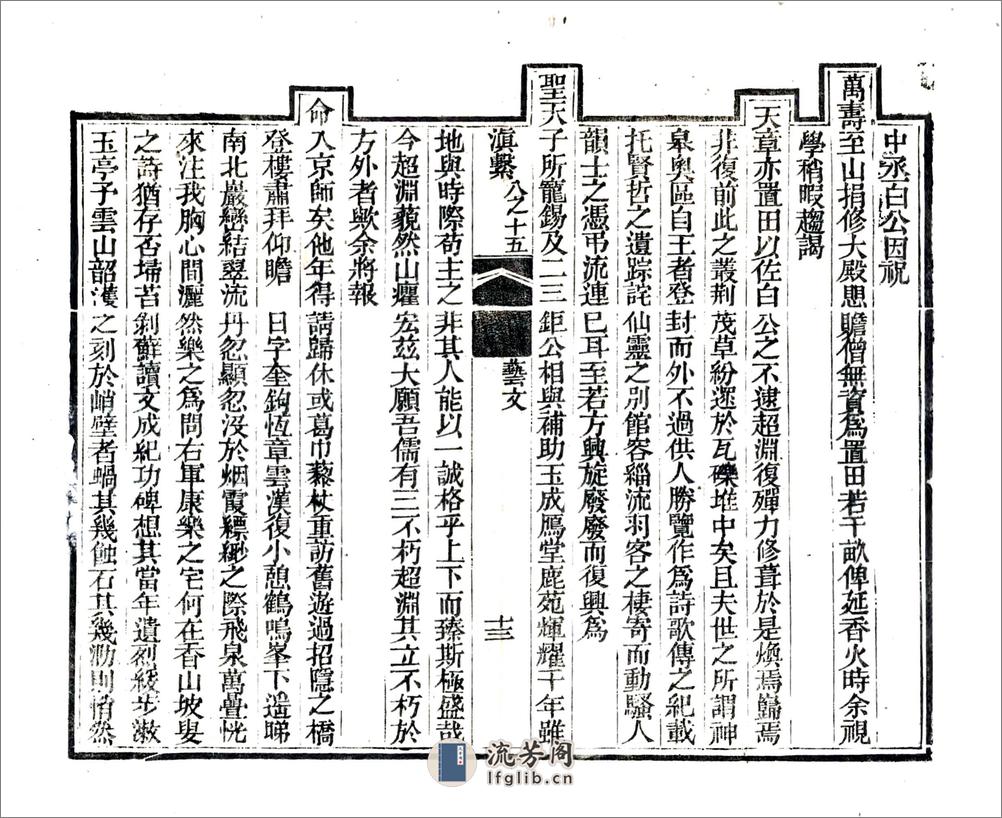 中丞白公因祝
萬壽至山捐修大殿患贍僧無資為置田若干畝俾延香火時余視
學稍暇趨謁
天章亦置田以佐白公之不逮超淵復殫力修葺於是煥焉巋焉
非復前此之叢荆茂草紛遝於瓦礫堆中矣且夫世之所謂神
皋奥區自王者登封而外不過供人勝覽作為詩歌傳之紀載
托賢哲之遺踪詫仙靈之別館容緇流羽客之棲寄而動騷人
韻士之憑弔流連巳耳至若方興旋廢廢而復興為
聖天子所寵錫及二三鉅公相與補助玉成鴈堂鹿苑輝耀千年雖
滇繫 八之十五 藝文 十三
地與時際苟主之非其人能以一誠格乎上下而臻斯極盛哉
今超淵藐然山癯宏茲大願吾儒有三不朽超淵其立不朽於
方外者歟余將報
命入京師矣他年得請歸休或葛巾藜杖重訪舊遊過招隱之橋
登樓肅拜仰瞻日字奎鉤恆章雲漢復小憩鶴鳴峯下遥睇
南北巖巒結翠流丹忽顯忽没於烟霞縹緲之際飛泉萬疊恍
來注我胸心間灑然樂之為問右軍康樂之宅何在香山坡叟
之詩猶存否埽苔剝蘚讀文成紀功碑想其當年遺烈緩步漱
玉亭子雲山韶濩之刻於峭壁者蝸其幾蝕石其幾泐則悄然
流芳阁
lfglib.cn